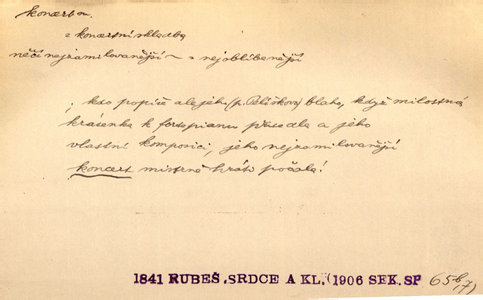 koncert m.
= koncertní skladba
něčí nejzamilovanější ~ = nejoblíbenější
; kdo popíše ale jeho (p. Pěliškova) blaho, když milostná
krásenka k fortepianu přisedla a jeho
vlastní komposici, jeho nejzamilovanější
koncert mistrně hráti počala!
1841 RUBEŠ, SRDCE A KL. (1906 SEK. SP 65b, 7)